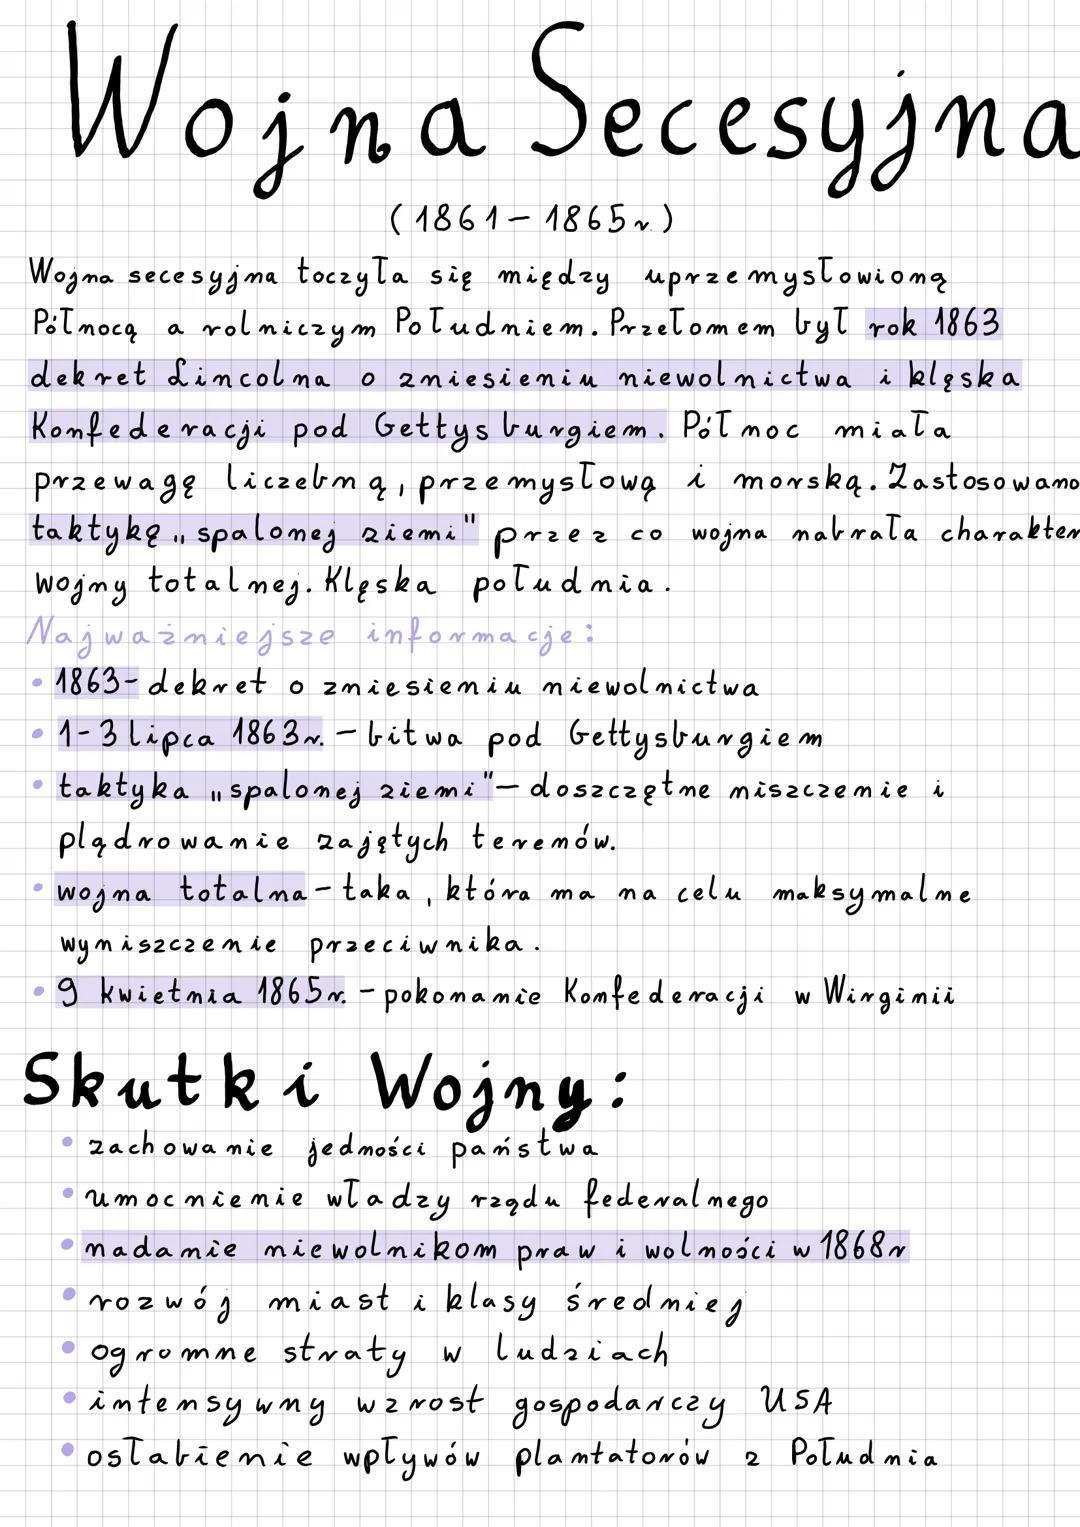 Wojna Secesyjna
(1861-1865r.)
Wojna secesyjna toczyła się między uprzemysłowioną
Północą a rolniczym Południem. Przełomem był rok 1863
dekret Lincolna o zniesieniu niewolnictwa i klęska
Konfederacji pod Gettysburgiem. Północ miała
przewagę liczebną, przemysłową i morską. Zastosowano
taktykę „spalonej ziemi" przez co wojna nabrała charakter
wojny totalnej. Klęska południa.
Najważniejsze informacje:
• 1863- dekret o zniesieniu niewolnictwa
• 1-3 lipca 1863r. - bitwa pod Gettysburgiem
• taktyka „spalonej ziemi"- doszczętne niszczenie i
plądrowanie zajętych terenów.
• wojna totalna - taka, która ma na celu maksymalne
wyniszczenie przeciwnika.
• 9 kwietnia 1865r. - pokonanie Konfederacji w Wirginii
Skutki Wojny:
• zachowanie jedności państwa
• umocnienie władzy rządu federalnego
• nadanie niewolnikom praw i wolności w 1868r
• rozwój miast i klasy średniej
• ogromne straty w ludziach
• intensywny wzrost gospodarczy USA
• osłabienie wpływów plantatorów z Południa